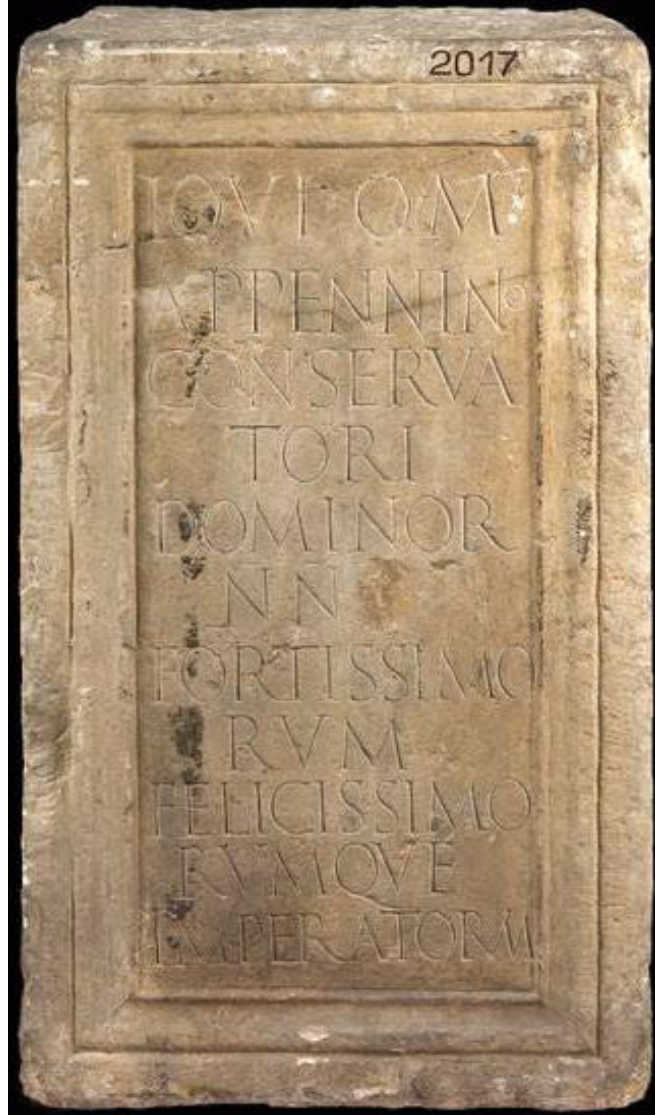 2017
IOVI O M
APPENNINO
CONSERVA
TORI
DOMINOR
NN
FORTISSIMO
RVM
FELICISSIMO
RVMQVE
IMPERATORM